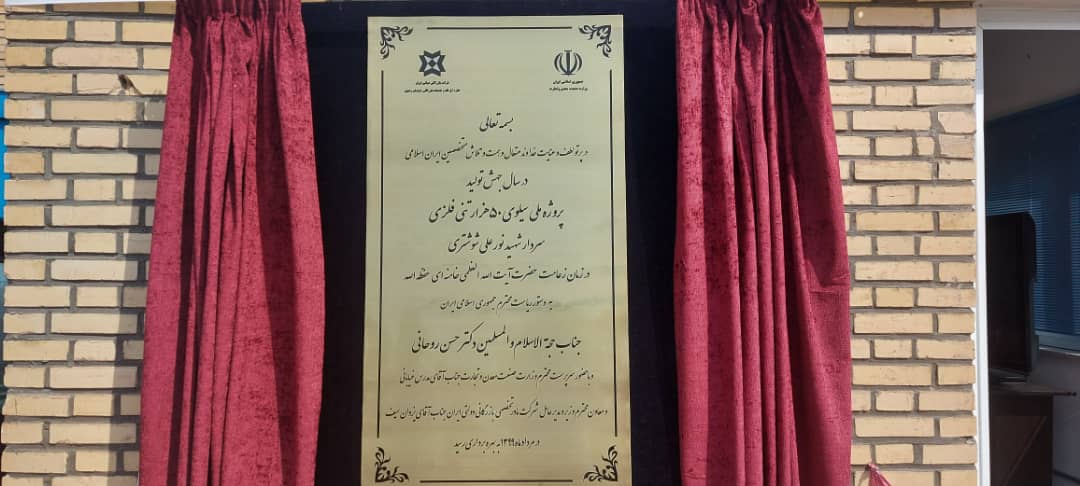 جمهوری اسلامی ایران
وزارت صنعت، معدن و تجارت
بسمه تعالی
در پرتو لطف و عنایت خداوند متعال و همت و تلاش متخصصین ایران اسلامی
در سال جهش تولید
پروژه ملی سیلوی ۵۰ هزار تنی فلزی
سردار شهید نور علی شوشتری
در زمان زعامت حضرت آیت الله العظمی خامنه ای حفظه الله
به دستور ریاست محترم جمهوری اسلامی ایران
جناب حجة الاسلام والمسلمین دکتر حسن روحانی
و با حضور سرپرست محترم وزارت صنعت معدن و تجارت جناب آقای مدرس خیابانی
و معاون محترم وزیر و مدیر عامل شرکت مادر تخصصی بازرگانی دولتی ایران جناب آقای یزدان سیف
در مرداد ماه ۱۳۹۹ به بهره برداری رسید